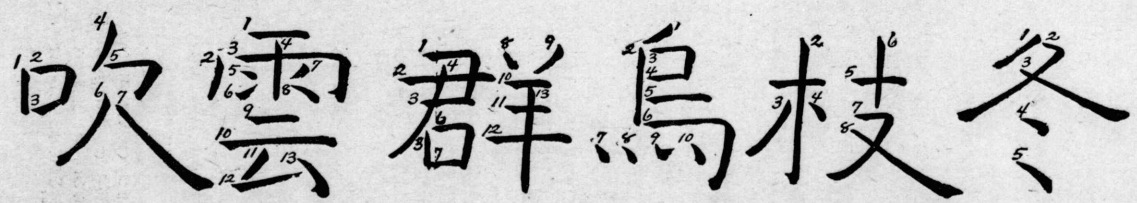 吹雲群烏枝冬